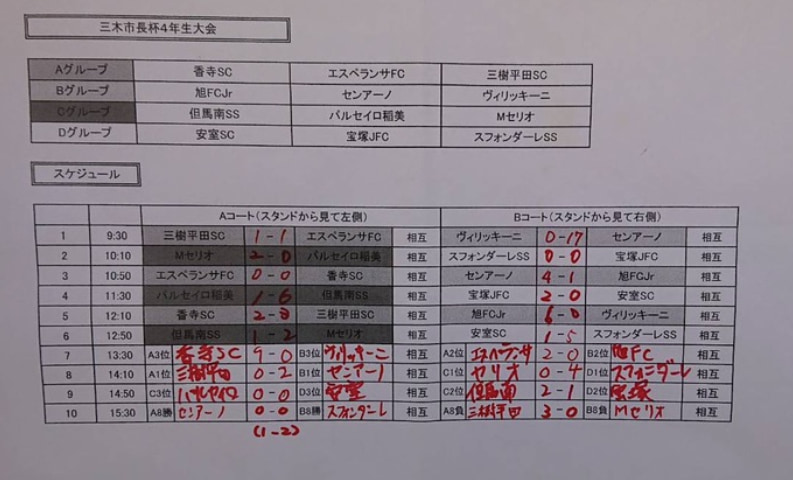 三木市長杯4年生大会
Aグループ 香寺SC エスペランサFC 三樹平田SC
Bグループ 旭FCJr センアーノ ヴィリッキーニ
Cグループ 但馬南SS パルセイロ稲美 Mセリオ
Dグループ 安室SC 宝塚JFC スフォンダーレSS
スケジュール
Aコート(スタンドから見て左側) Bコート(スタンドから見て右側)
1 9:30 三樹平田SC 1-1 エスペランサFC 相互 ヴィリッキーニ 0-17 センアーノ 相互
2 10:10 Mセリオ 2-0 パルセイロ稲美 相互 スフォンダーレSS 0-0 宝塚JFC 相互
3 10:50 エスペランサFC 0-0 香寺SC 相互 センアーノ 4-1 旭FCJr 相互
4 11:30 パルセイロ稲美 1-6 但馬南SS 相互 宝塚JFC 2-0 安室SC 相互
5 12:10 香寺SC 2-3 三樹平田SC 相互 旭FCJr 6-0 ヴィリッキーニ 相互
6 12:50 但馬南SS 1-2 Mセリオ 相互 安室SC 1-5 スフォンダーレSS 相互
7 13:30 A3位 香寺SC 9-0 B3位 ヴィリッキーニ 相互 A2位 エスペランサ 2-0 B2位 旭FC 相互
8 14:10 A1位 三樹平田 0-2 B1位 センアーノ 相互 C1位 セリオ 0-4 D1位 スフォンダーレ 相互
9 14:50 C3位 パルセイロ 0-0 D3位 安室 相互 C2位 但馬南 2-1 D2位 宝塚 相互
10 15:30 A8勝 センアーノ 0-0 B8勝 スフォンダーレ 相互 A8負 三樹平田 3-0 B8負 Mセリオ 相互
(1-2)